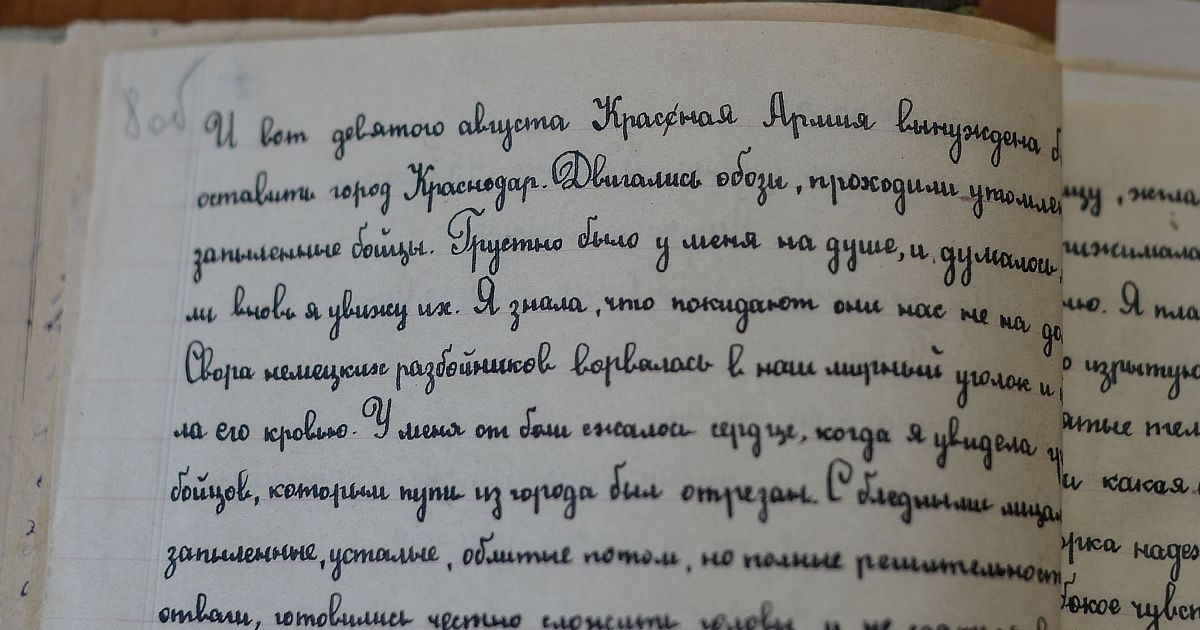 8 об
И вот девятого августа Красная Армия вынуждена б
оставить город Краснодар. Двигались обозы, проходили утомлен
запыленные бойцы. Грустно было у меня на душе, и думалось,
ли вновь я увижу их. Я знала, что покидают они нас не на до
Свора немецких разбойников ворвалась в наш мирный уголок и
ла его кровью. У меня от боли сжалось сердце, когда я увидела
бойцов, которым путь из города был отрезан. С бледными лица
запыленные, усталые, облитые потом, но полные решительност
отваги, готовились честно сложить головы и не
щу, жгла
жимала
лю. Я пла
о изрытую
ятые тел
и какая
рка надеж
бокое чувст